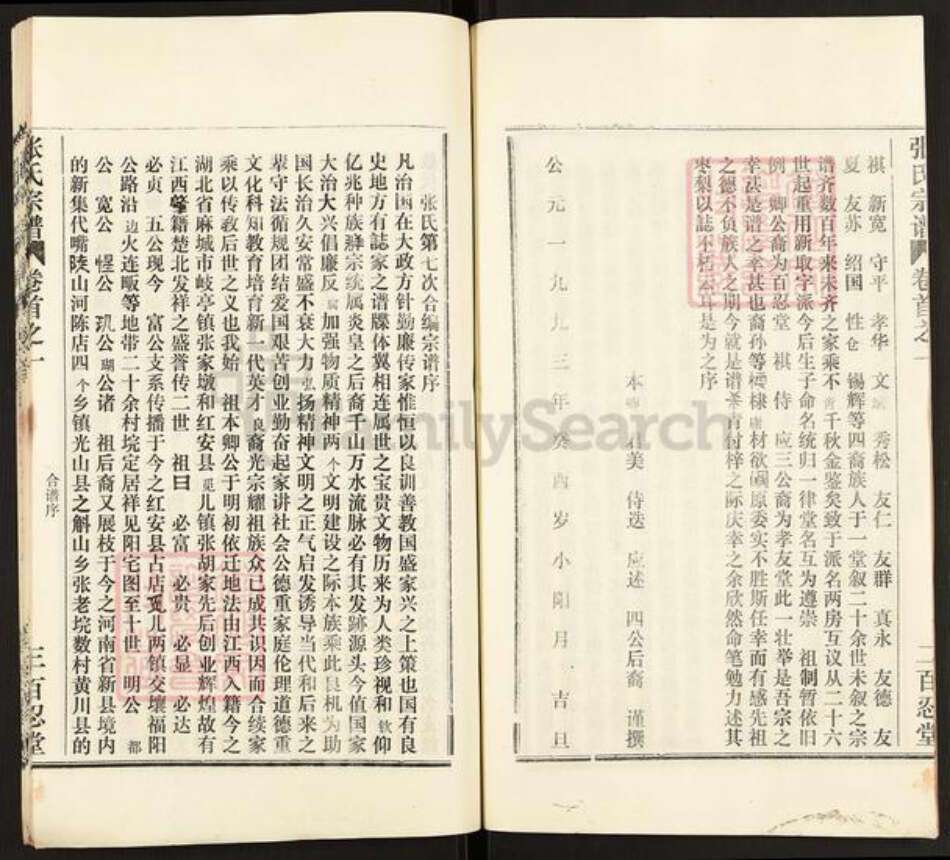 张氏宗谱 卷首之一 二 百忍堂
祺 新宽 守平 孝华 文 秀松 友仁 友群 真永 友德 友
夏 友苏 绍国 性仓 锡辉等四裔族人于一堂叙二十余世未叙之宗
谱齐数百年来未齐之家乘不 千秋金鉴矣致于派名两房互议从二十六
世起重用新取字派今后生子命名统归一律堂名互为遵崇 祖制暂依旧
例 卿公裔为百忍堂 祺 侍 应三公裔为孝友堂此一壮举是吾宗之
幸甚是谱之幸甚也裔孙等 棣 材欲 原委实不胜斯任幸而有感先祖
之德不负族人之期今就是谱 青付梓之际庆幸之余欣然命笔勉力述其
枣梨以誌不朽云耳是为之序
本卿 祥美 侍选 应述 四公后裔 谨撰
公元一九九三年癸酉岁小阳月 吉旦
张氏第七次合编宗谱序
凡治国在大政方针勤廉传家惟恒以良训善教国盛家兴之上策也国有良
史地方有誌家之谱牒体翼相连属世之宝贵文物历来为人类珍视和钦仰
亿兆种族繇宗统属炎皇之后裔千山万水流脉必有其发跡源头今值国家
大治大兴倡廉反腐加强物质精神两个文明建设之际本族乘此良机为助
国长治久安常盛不衰大力弘扬精神文明之正气启发诱导当代和后来之
辈守法循规团结爱国艰苦创业勤奋起家讲社会公德重家庭伦理道德重
文化科知教育培育新一代英才良裔光宗耀祖族众已成共识因而合续家
乘以传教后世之义也我始 祖本卿公于明初依迁地法由江西入籍今之
湖北省麻城市岐亭镇张家墩和红安县觅儿镇张胡家先后创业辉煌故有
江西肇籍楚北发祥之盛誉传二世 祖曰 必富 必贵 必显 必达
必贞 五公现今 富公支系传播于今之红安县占店觅儿两镇交壤福阳
公路沿边火连畈等地带二十余村垸定居祥见阳宅图至十世 明公 都
公 宽公 惺公 玑公 瑚公诸 祖后裔又展枝于今之河南省新县境内
的新集代嘴陡山河陈店四个乡镇光山县之斛山乡张老垸数村黄川县的
合谱序
张氏宗谱 卷首之一 三 百忍堂
FamilySearch